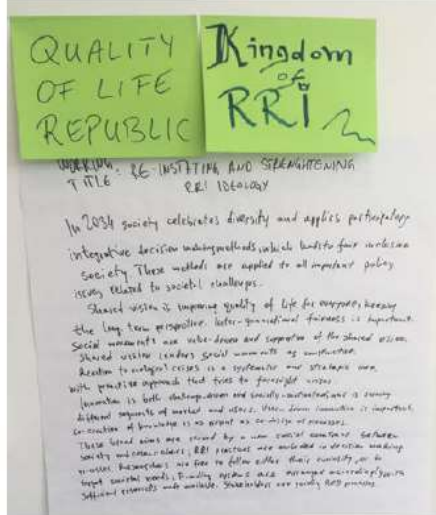 QUALITY
OF LIFE
REPUBLIC
Kingdom
of
RRI
WORKING
TITLE: RE-INSTATING AND STRENGHTENING
RRI IDEOLOGY
In 2034 society celebrates diversity and applies participatory
integrative decision making methods which leads to fair inclusive
society. These methods are applied to all important policy
issues related to societal challenges.
Shared vision is improving quality of life for everyone, keeping
the long term perspective. Inter-generational fairness is important.
Social movements are value-driven and supportive of the shared vision.
Shared vision renders social movements as constructive.
Reaction to ecological crises is a systematic and strategic one,
with proactive approach that tries to foresight crises
Innovation is both challenge-driven and socially-motivated and is serving
different segments of market and users. User-driven innovation is important,
co-creation of knowledge is as important as co-design of processes.
These broad aims are served by a new social contract between
society and researchers; RRI practices are included in decision making
processes. Researchers are free to follow either their curiosity, or to
target societal needs; Funding systems are arranged accordingly with
sufficient resources made available. Stakeholders are jointly RRI